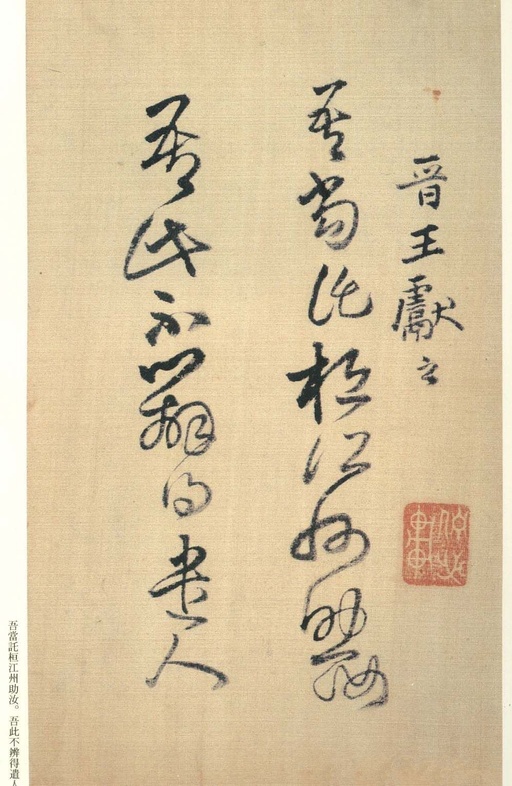 晉王獻之
吾當託桓江州助汝
吾此不辨得遣人
吾當託桓江州助汝。吾此不辨得遣人